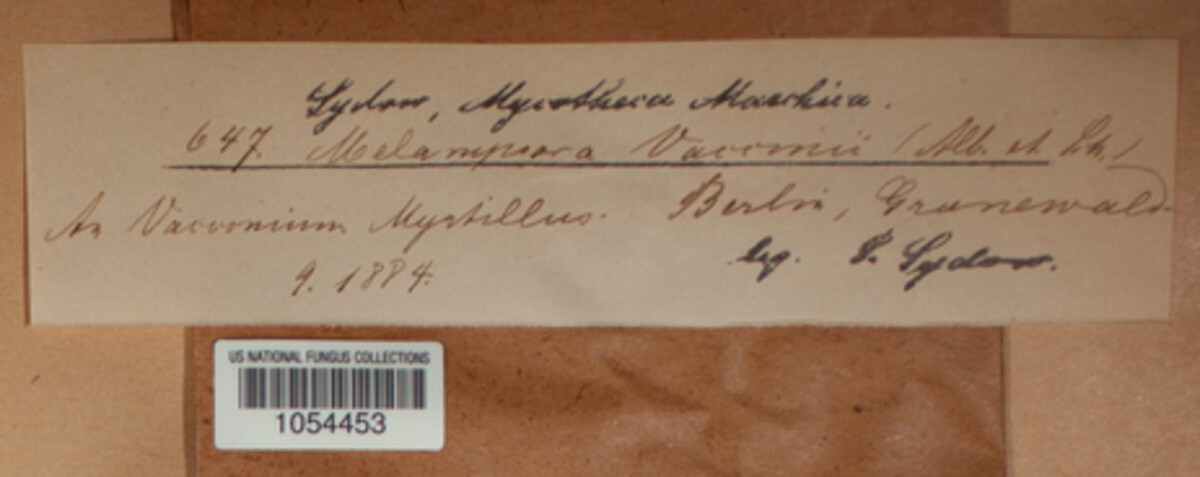 Sydow, Mycotheca Marchica.
647. Melampsora Vaccinii (Alb. et Sch.)
An Vaccinium Myrtillus. Berlin, Grunewald.
9. 1884. leg. P. Sydow.
US NATIONAL FUNGUS COLLECTIONS
1054453